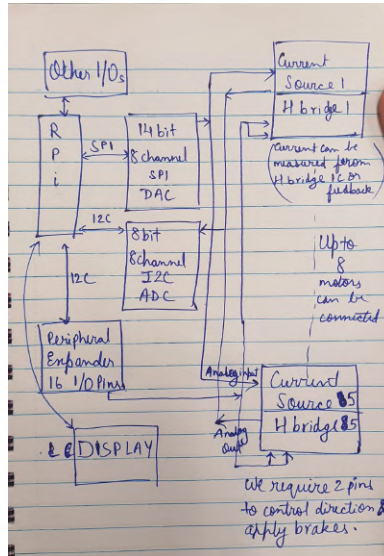 Other I/Os
R
P
i
SPI
14 bit
8 channel
SPI
DAC
I2C
8 bit
8 channel
I2C
ADC
I2C
Peripheral
Expander
16 I/O Pins
DISPLAY
Current
Source 1
H bridge 1
(Current can be
measured from
H bridge IC or
feedback)
Up to
8
motors
can be
connected
Analog input
Analog
Out
Current
Source 5
H bridge 5
We require 2 pins
to control direction &
apply brakes.